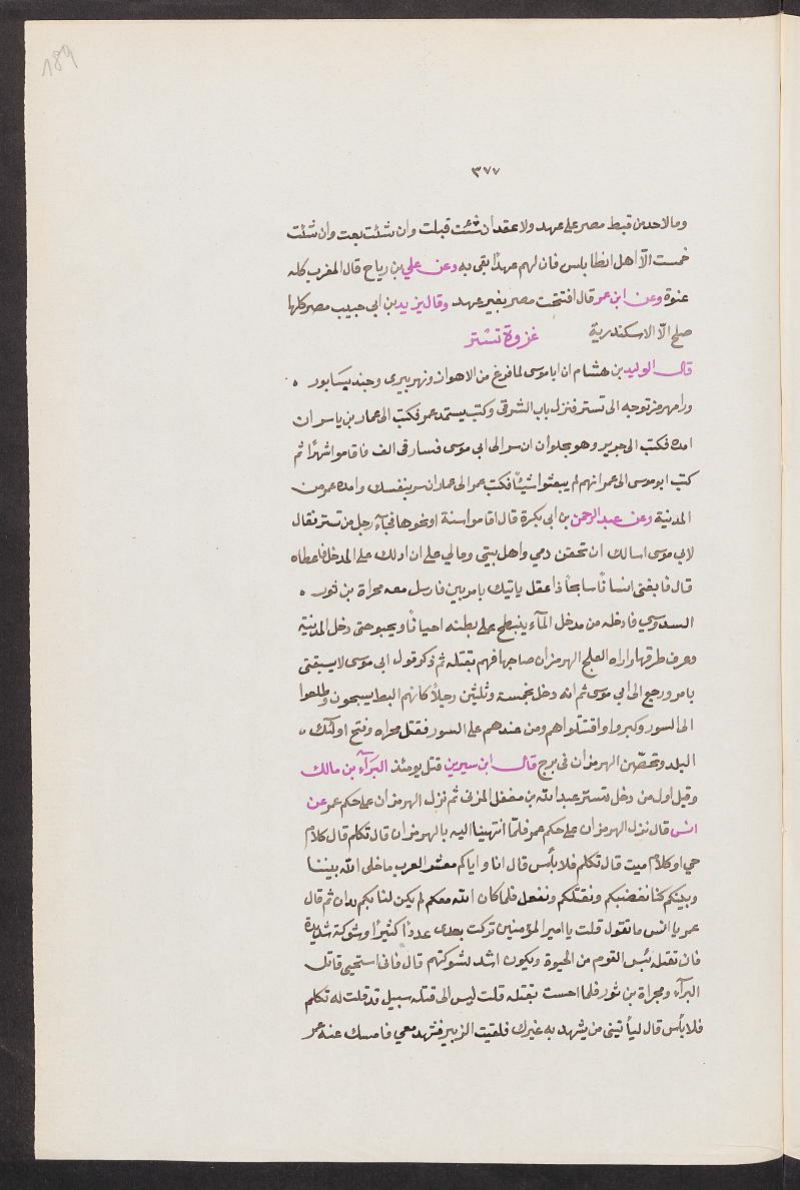 189
٣٧٧
وما لاحد من قبط مصر على عهد ولا عقد ان شئت قبلت وان شئت بعت وان شئت
خمست الّا اهل انطابلس فان لهم عهدًا بقى به وعن علي بن رياح قال المغرب كله
عنوة وعن ابن عمر قال افتتحت مصر بغير عهد وقال يزيد بن ابي حبيب مصر كلها
صلح الّا الاسكندرية غزوة تستر
قال الوليد بن هشام ان ابا موسى لما فرغ من الاهواز ونهر تيرى وجنديسابور
ورامهرمز توجه الى تستر فنزل باب الشرقى وكتب يستمد عمر فكتب الى عمار بن ياسر ان
امده فكتب الى جرير وهو بحلوان ان سر الى ابي موسى فسار فى الف فاقاموا شهرًا ثم
كتب ابو موسى الى عمر انهم لم يبعثوا شيئًا فكتب عمر الى عمار ان سر بنفسك وامده عمر من
المدنية وعن عبد الرحمن بن ابي بكرة قال اقاموا سنة او نحوها فجآء رجل من تستر فقال
لابي موسى اسالك ان تحقن دمي واهل بيتي ومالي على ان ادلك على المدخل فاعطاه
قال فابغنى انسانًا سابحًا ذا عقل ياتيك بامر بين فارسل معه مجراة بن ثور
السدوسي فادخله من مدخل المآء ينبطح على بطنه احيانًا ويحبو حتى دخل المدنية
وعرف طرقها واراه العلج الهرمزان صاحبها فهم بقتله ثم ذكر قول ابى موسى لا يسبقنى
بامر ورجع الى ابي موسى ثم انه دخل بخمسة وثلثين رجلاً كانهم البط يسبحون وطلعوا
الى السور وكبروا واقتتلواهم ومن عندهم على السور فقتل مجراه وفتح اولئك
البلد وتحصّن الهرمزان فى برج قال ابن سيرين قتل يومئذ البرآء بن مالك
وقيل اول من دخل تستر عبد الله بن مغفل المزنى ثم نزل الهرمزان على حكم عمر عن
انس قال نزل الهرمزان على حكم عمر فلمّا انتهينا اليه بالهرمزان قال تكلم قال كلام
حي او كلام ميت قال تكلم فلا بأس قال انا واياكم معشر العرب ما خلى الله بيننا
وبينكم كنا نغضبكم ونقتلكم ونفعل فلما كان الله معكم لم يكن لنا بكم يدان ثم قال
عمر يا انس ما تقول قلت يا امير المؤمنين تركت بعدى عددًا كثيرًا وشوكة شديدة
فان تقتله يئس القوم من الحيوة ويكون اشد لشوكتهم قال فانى استحيى قاتل
البرآء ومجراة بن ثور فلما احست بقتله قلت ليس الى قتله سبيل قد قلت له تكلم
فلا بأس قال ليأتينى من يشهد به غيرك فلقيت الزبير فشهد معي فامسك عنه عمر